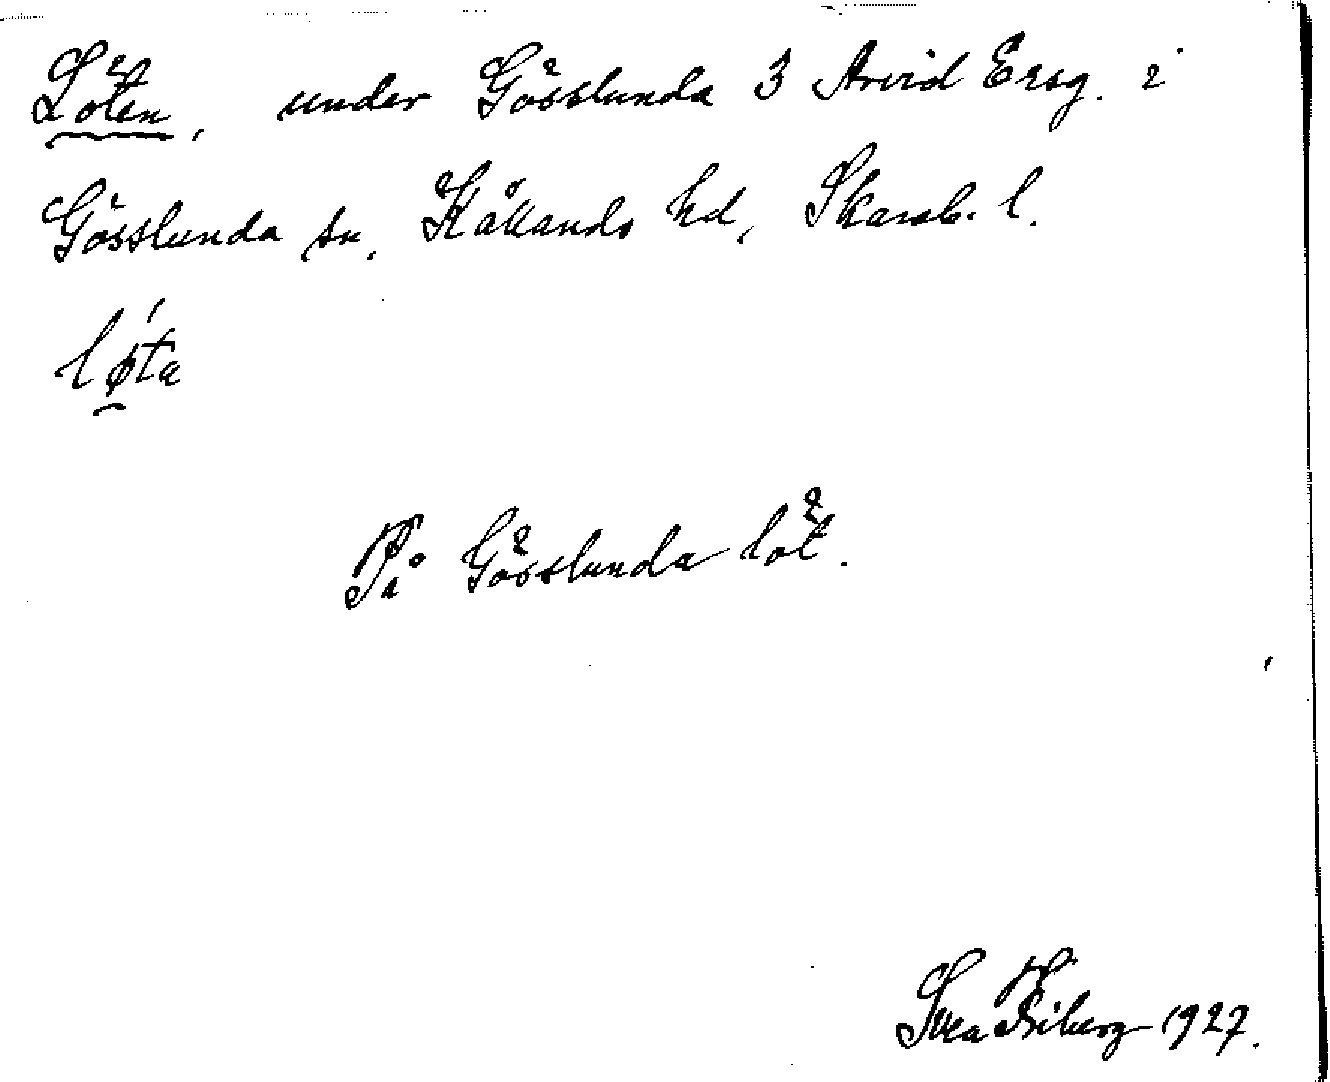 Löten, under Gösslunda 3 Arvid Ersg. i
Gösslunda sn, Kållands hd, Skarab. l.
lǿta
På Gösslunda löt.
Svea Friberg 1927.